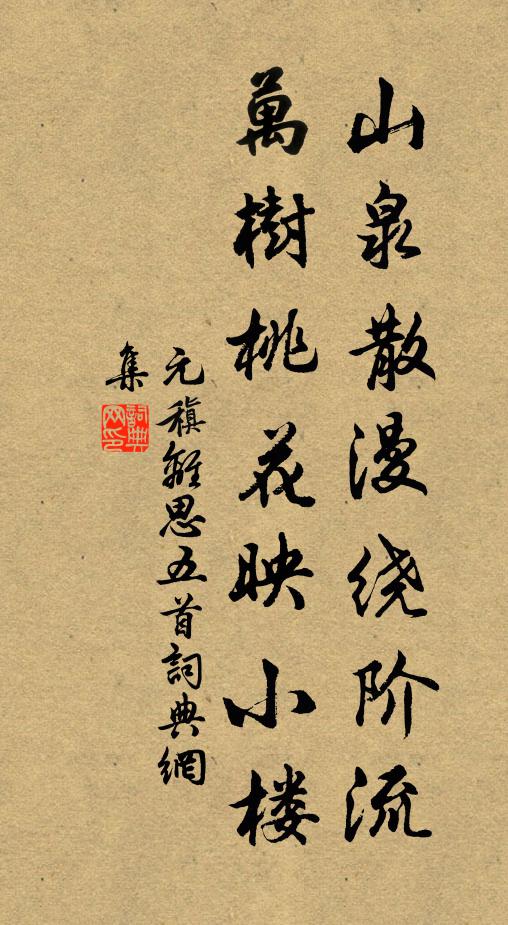 山泉散漫绕阶流
萬樹桃花映小楼
元稹離思五首詞典網
集
詞典网印